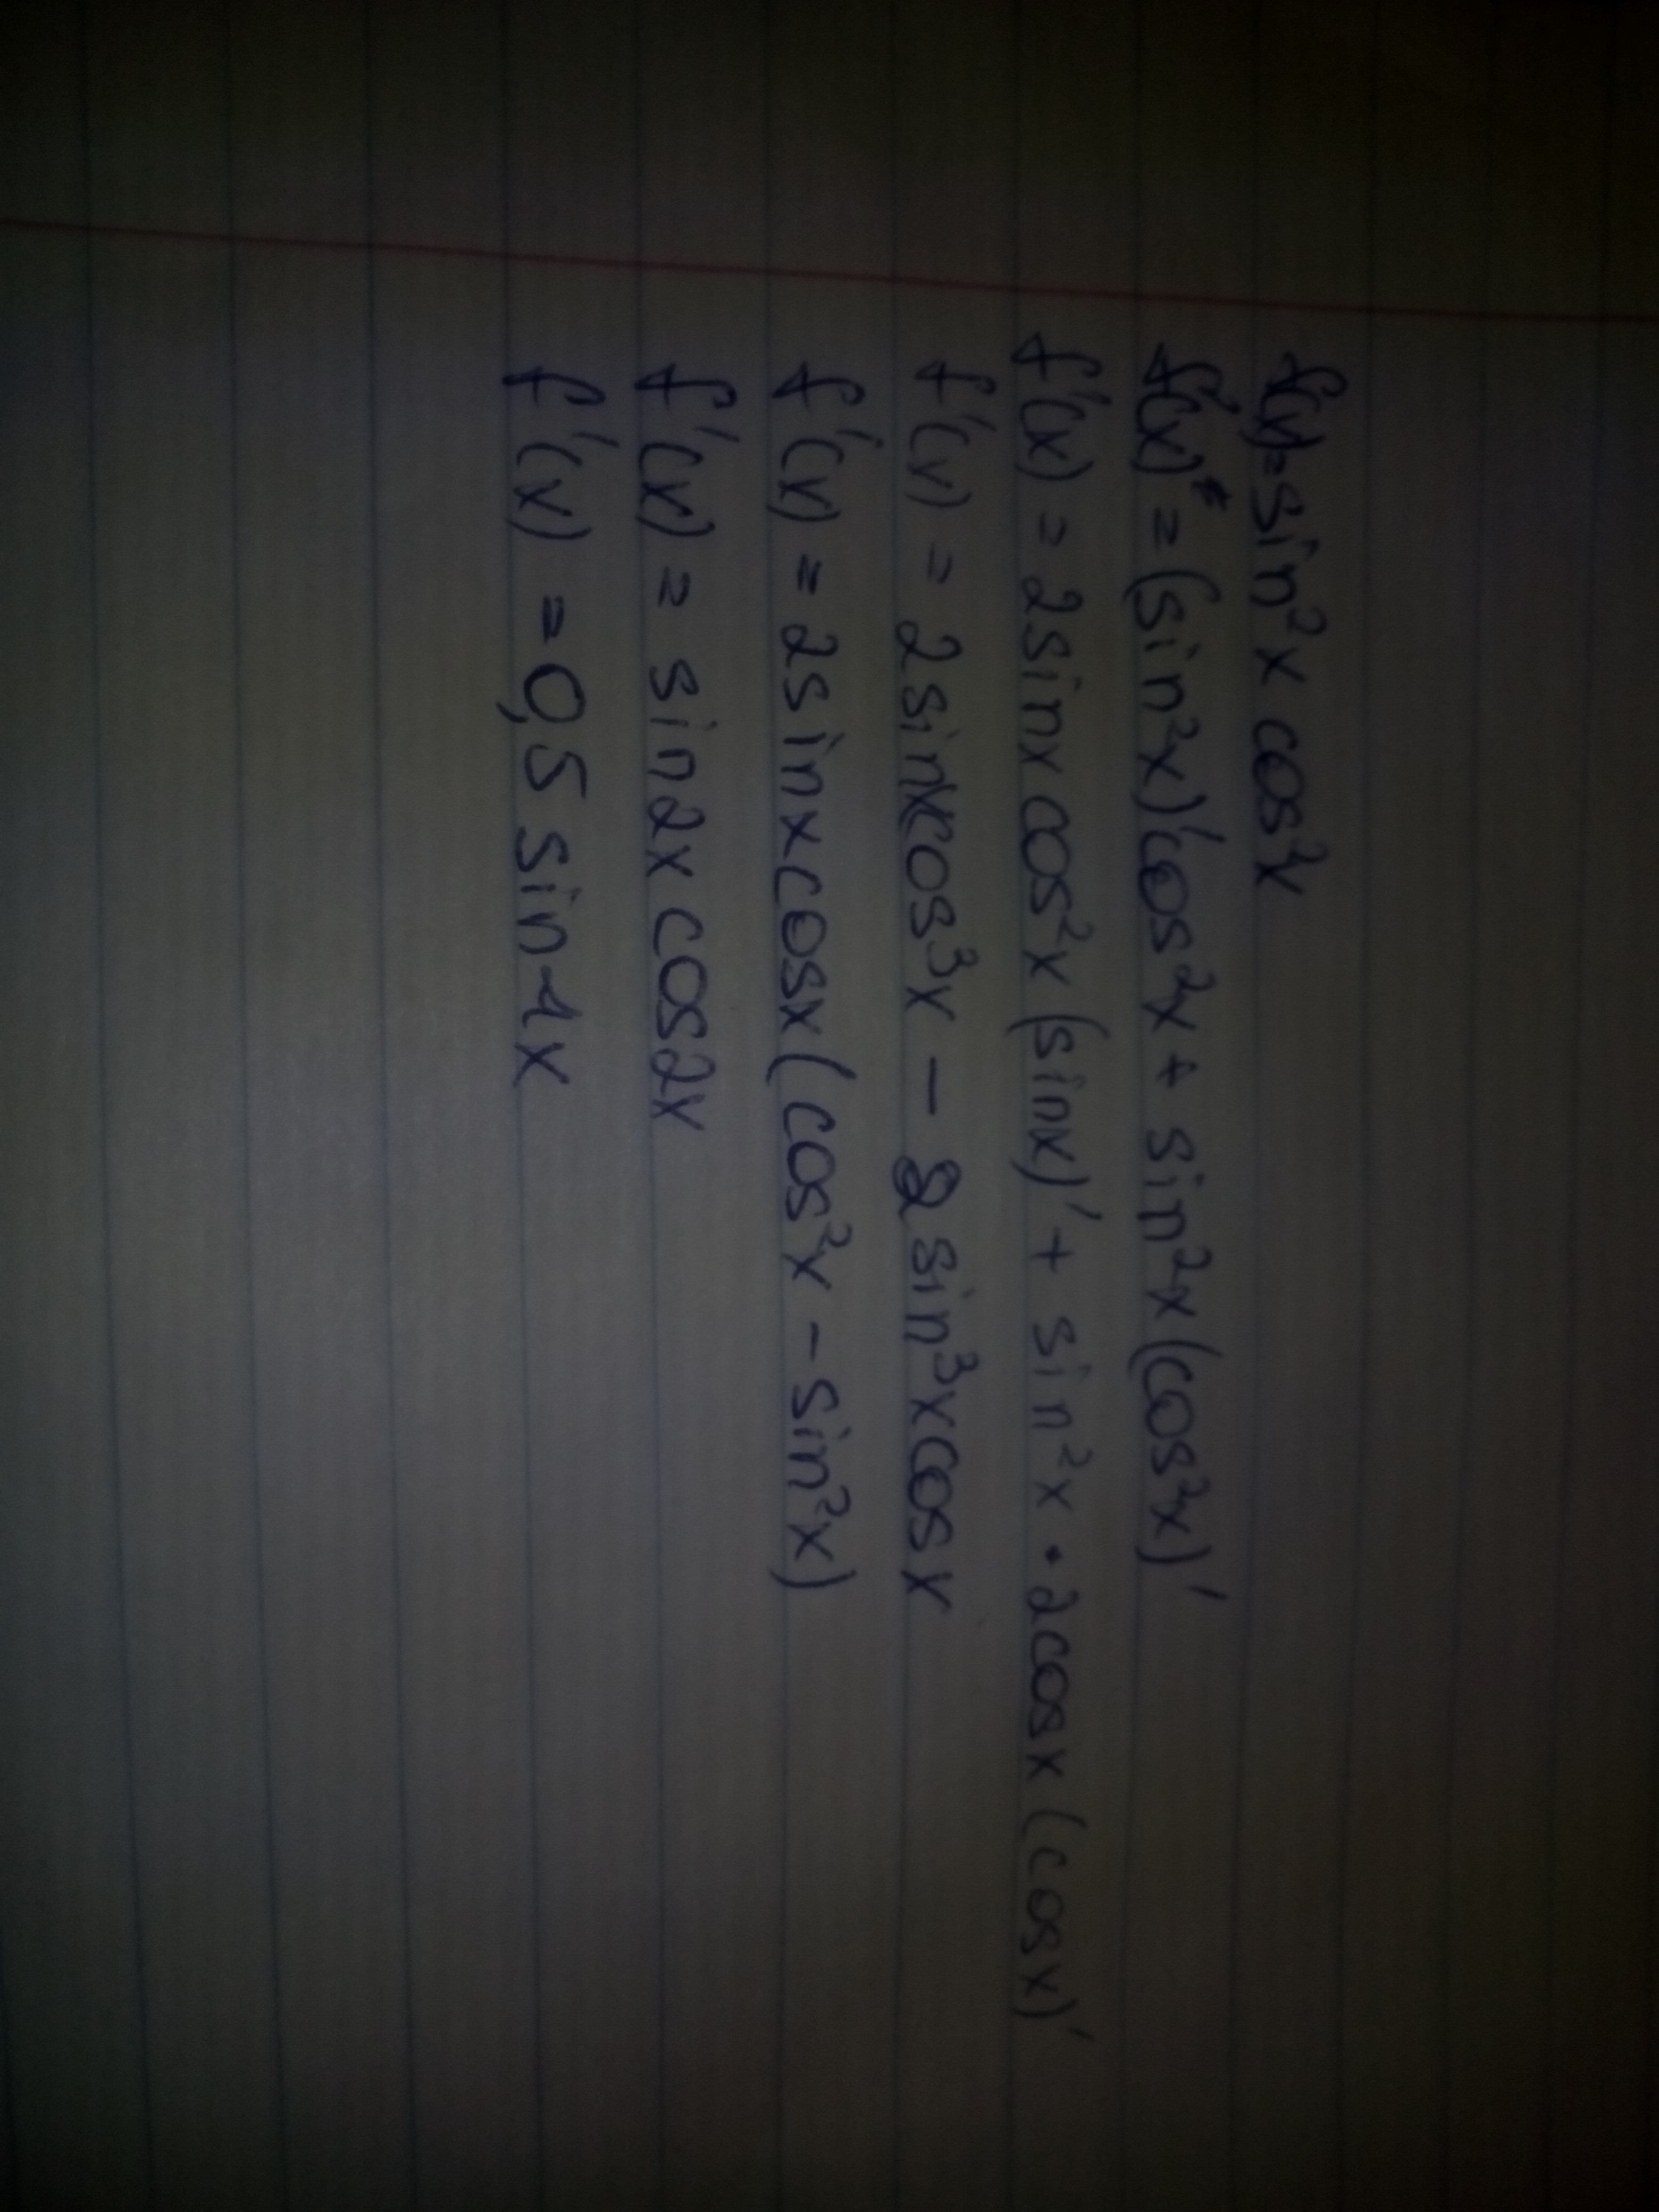 f(x)=sin²x cos²x
f'(x) = (sin²x)'cos²x + sin²x(cos²x)'
f'(x) = 2sinx cos²x (sinx)' + sin²x • 2cosx (cosx)'
f'(x) = 2sinxcos³x - 2 sin³xcosx
f'(x) = 2sinxcosx(cos²x - sin²x)
f'(x) = sin2x cos2x
f'(x) = 0,5 sin4x